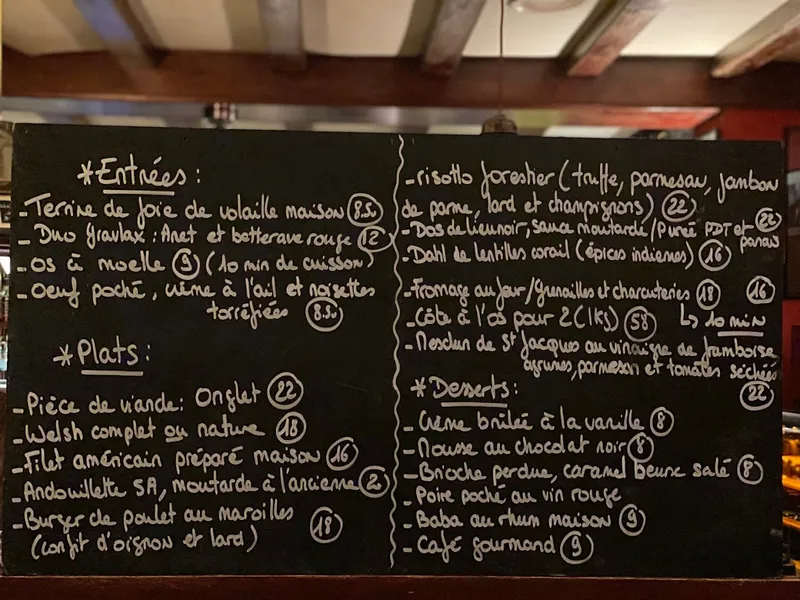 *Entrées:
-Terrine de foie de volaille maison 8.50
- Duo gravlax : Anet et betterave rouge 12
- os à moelle 9 (10 min de cuisson)
- oeuf poché, crème à l'ail et noisettes
torréfiées 8.50
*Plats:
-Pièce de viande: Onglet 22
-Welsh complet ou nature 18
-Filet américain préparé maison 16
-Andouillette 5A, moutarde à l'ancienne
-Burger de poulet au maroilles 18
(confit d'oignon et lard)
-risotto forestier (truffe, parmesan, jambon
de parme, lard et champignons) 22
-Dos de lieu noir, sauce moutarde / Purée PDT et panais 22
-Dahl de lentilles corail (épices indiennes) 16
-Fromage au four/grenailles et charcuteries 18 16
-Côte à l'os pour 2 (1kg) 58 ↳ 10 min
-Mesclun de St Jacques au vinaigre de framboise,
agrumes, parmesan et tomates séchées
22
*Desserts:
-Crème brûlée à la vanille 8
-Mousse au chocolat noir 8
-Brioche perdue, caramel beurre salé 8
- Poire poché au vin rouge
- Baba au rhum maison 9
- Café gourmand 9